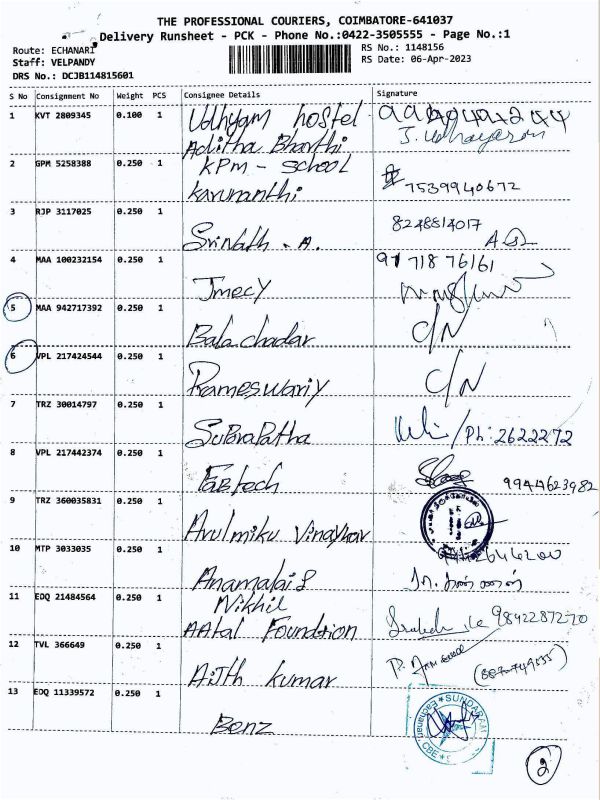 THE PROFESSIONAL COURIERS, COIMBATORE-641037
Delivery Runsheet - PCK - Phone No.:0422-3505555 - Page No.:1
Route: ECHANARI RS No.: 1148156
Staff: VELPANDY RS Date: 06-Apr-2023
DRS No.: DCJB114815601
S No Consignment No Weight PCS Consignee Details Signature
1 KVT 2809345 0.100 1 Udhyam hostel
Aditha Bharthi
2 GPM 5258388 0.250 1 KPm - School
Karunanthi 7539940672
3 RJP 3117025 0.250 1 8248814017
Srinath . A.
4 MAA 100232154 0.250 1 91 718 76161
Jmecy
5 MAA 942717392 0.250 1 C/N
Bala chadar
6 VPL 217424544 0.250 1 C/N
Rameswariy
7 TRZ 30014797 0.250 1 /Ph: 2622272
SuPara Patha
8 VPL 217442374 0.250 1
Fabtech 9944623982
9 TRZ 360035831 0.250 1
Arulmiku Vinaykar
10 MTP 3033035 0.250 1
Anamalai S
11 EDQ 21484564 0.250 1 Nikhil
AAtal Foundation 9842287270
12 TVL 366649 0.250 1
Ajith kumar
13 EDQ 11339572 0.250 1 SUNDARAM
Benz Eachanari
CBE
2